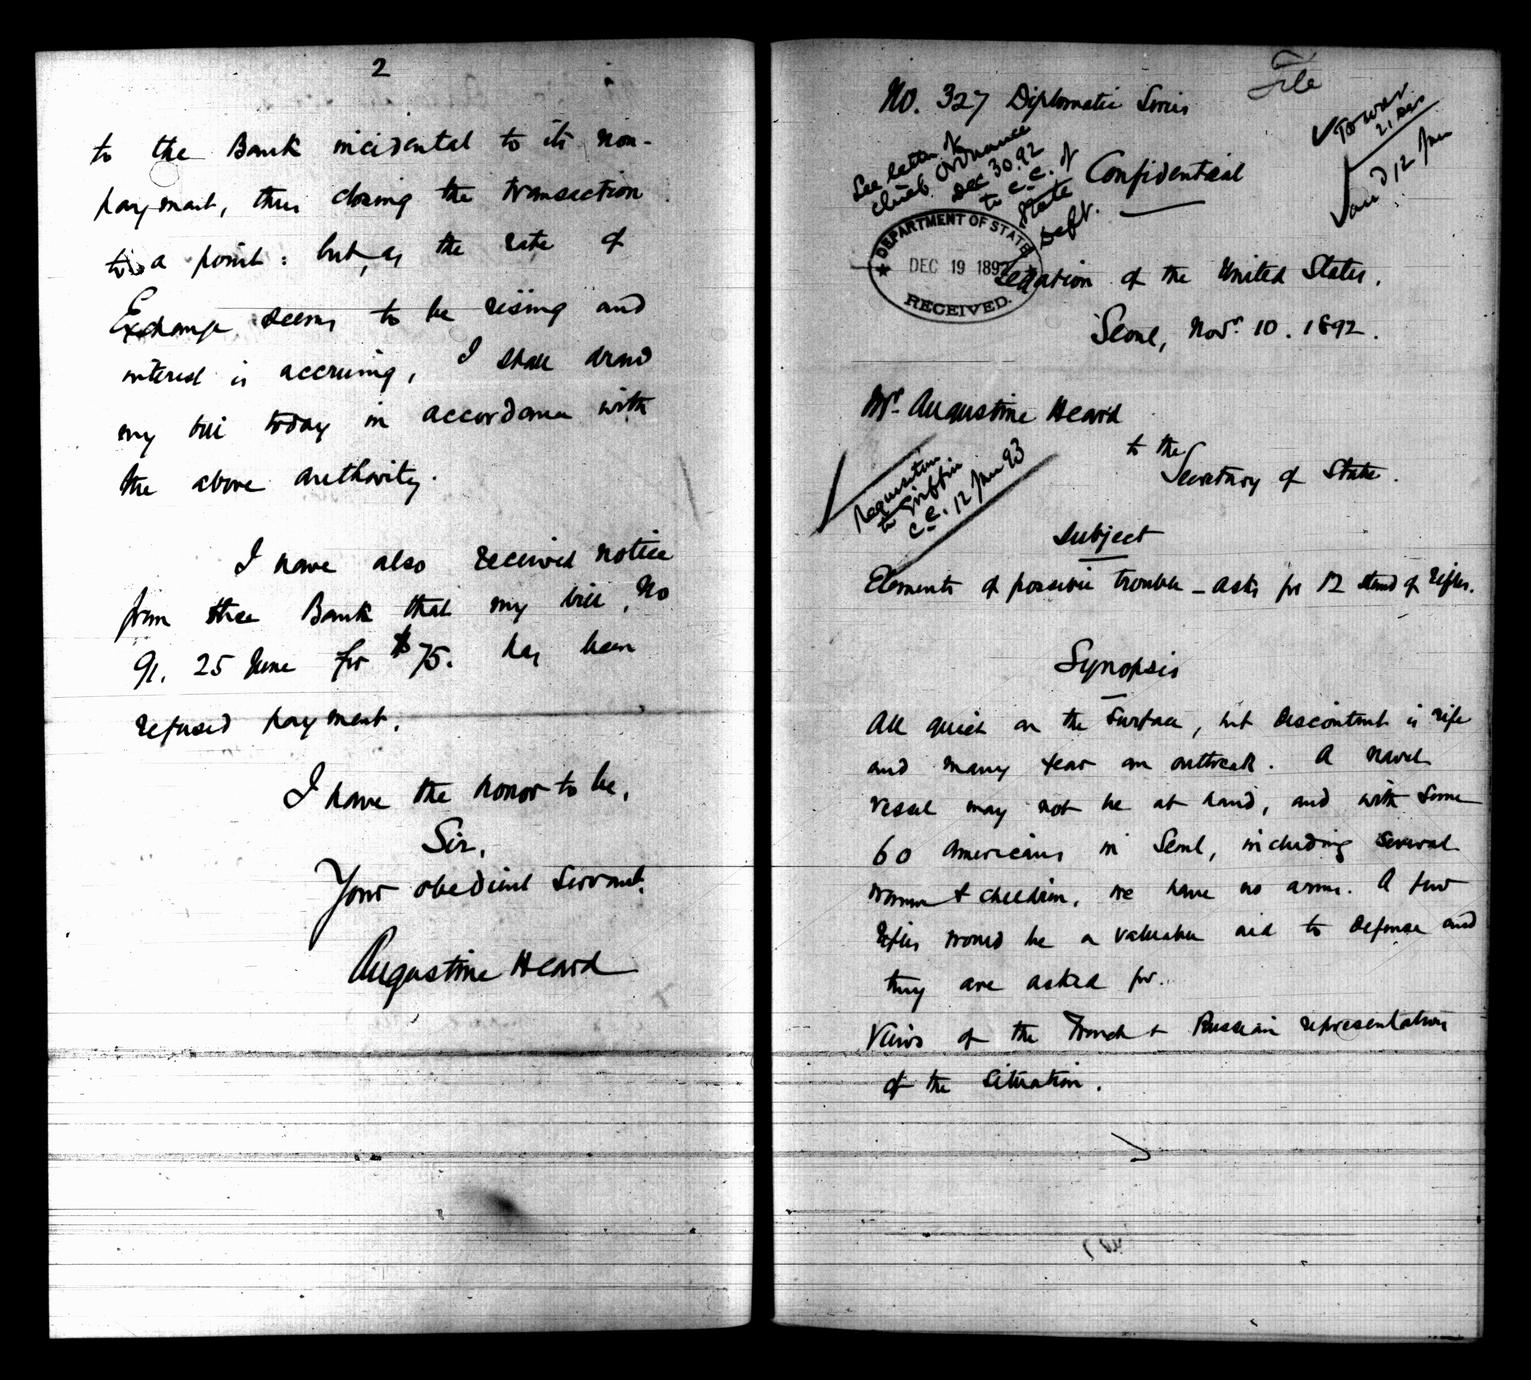 2
to the Bank incidental to its non-
payment, thus closing the transaction
to a point: but, as the rate of
Exchange seems to be rising and
interest is accruing, I shall draw
my bill today in accordance with
the above authority.
I have also received notice
from the Bank that my bill, No
91, 25 June for $75. has been
refused payment.
I have the honor to be,
Sir,
Your obedient Servant,
Augustine Heard
File
No. 327 Diplomatic Series
To War
21 Dec
and 12 Jan
See letter of
Chief Ordnance
Dec 30.92
to C.C. of
State
Dept.
Confidential
DEPARTMENT OF STATE
DEC 19 1892
RECEIVED.
Legation of the United States.
Seoul, Novr. 10. 1892.
Mr. Augustine Heard
to the
Secretary of State.
Requisition
to Griffin
C.C. 12 Jan 93
Subject
Elements of possible trouble - asks for 12 stand of rifles.
Synopsis
All quiet on the surface, but discontent is rife
and many fear an outbreak. A naval
vessel may not be at hand, and with some
60 Americans in Seoul, including several
women & children, we have no arms. A few
rifles would be a valuable aid to defense and
they are asked for.
Views of the French & Russian representatives
of the situation.